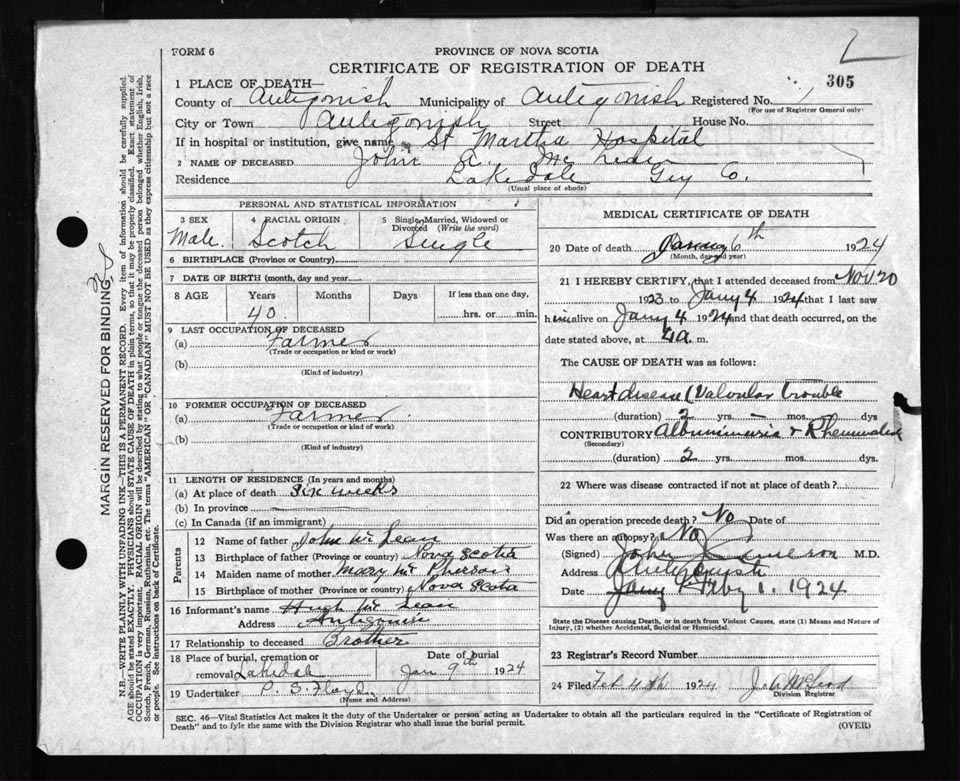 FORM 6
PROVINCE OF NOVA SCOTIA
CERTIFICATE OF REGISTRATION OF DEATH
305
1 PLACE OF DEATH—
County of Antigonish Municipality of Antigonish Registered No. 1
(For use of Registrar General only)
City or Town Antigonish Street House No.
If in hospital or institution, give name St Martha Hospital
2 NAME OF DECEASED John A. Mc Lean
Residence Lakedale Guy Co.
(Usual place of abode)
PERSONAL AND STATISTICAL INFORMATION
3 SEX
Male.
4 RACIAL ORIGIN
Scotch
5 Single, Married, Widowed or Divorced (Write the word)
Single
6 BIRTHPLACE (Province or Country)
7 DATE OF BIRTH (month, day and year)
8 AGE Years Months Days If less than one day,
40. hrs. or min.
9 LAST OCCUPATION OF DECEASED
(a) Farmer
(Trade or occupation or kind or work)
(b)
(Kind of industry)
10 FORMER OCCUPATION OF DECEASED
(a) Farmer.
(Trade or occupation or kind of work)
(b)
(Kind of industry)
11 LENGTH OF RESIDENCE (In years and months)
(a) At place of death six weeks
(b) In province
(c) In Canada (if an immigrant)
Parents
12 Name of father John Mc Lean
13 Birthplace of father (Province or country) Nova Scotia
14 Maiden name of mother Mary Mc Pherson
15 Birthplace of mother (Province or country) Nova Scotia
16 Informant's name Hugh Mc Lean
Address Antigonish
17 Relationship to deceased Brother
18 Place of burial, cremation or removal Lakedale
Date of burial
Jan 9th 1924
19 Undertaker P. S. Floyd
(Name and Address)
MEDICAL CERTIFICATE OF DEATH
20 Date of death January 6th 1924
(Month, day and year)
21 I HEREBY CERTIFY, that I attended deceased from Nov 20
1923 to Jany 4 1924 that I last saw
him alive on Jany 4 1924 and that death occurred, on
date stated above, at 4 a. m.
The CAUSE OF DEATH was as follows:
Heart disease (Valvular trouble
(duration) 2 yrs. — mos. dys
CONTRIBUTORY Albuminuria & Rheumatism
(Secondary)
(duration) 2 yrs. mos. dys.
22 Where was disease contracted if not at place of death?
Did an operation precede death? No Date of
Was there an autopsy? No
(Signed) John J Cameron M.D.
Address Antigonish
Date Jany Feby 1. 1924
State the Disease causing Death, or in death from Violent Causes, state (1) Means and Nature of
Injury, (2) whether Accidental, Suicidal or Homicidal.
23 Registrar's Record Number
24 Filed Feb 4th 1924 McLeod
Division Registrar
SEC. 46—Vital Statistics Act makes it the duty of the Undertaker or person acting as Undertaker to obtain all the particulars required in the "Certificate of Registration of
Death" and to fyle the same with the Division Registrar who shall issue the burial permit.
(OVER)
MARGIN RESERVED FOR BINDING
N.B.—WRITE PLAINLY WITH UNFADING INK—THIS IS A PERMANENT RECORD. Every item of information should be carefully supplied.
AGE should be stated EXACTLY. PHYSICIANS should STATE CAUSE OF DEATH in plain terms, so that it may be properly classified. Exact statement of
OCCUPATION is very important. RACIAL ORIGIN will be described by stating to what people or tongue the deceased person belonged whether English, Irish,
Scotch, French, German, Russian, Ruthenian, etc. The terms "AMERICAN" OR "CANADIAN" MUST NOT BE USED as they express citizenship but not a race
or people. See instructions on back of Certificate.